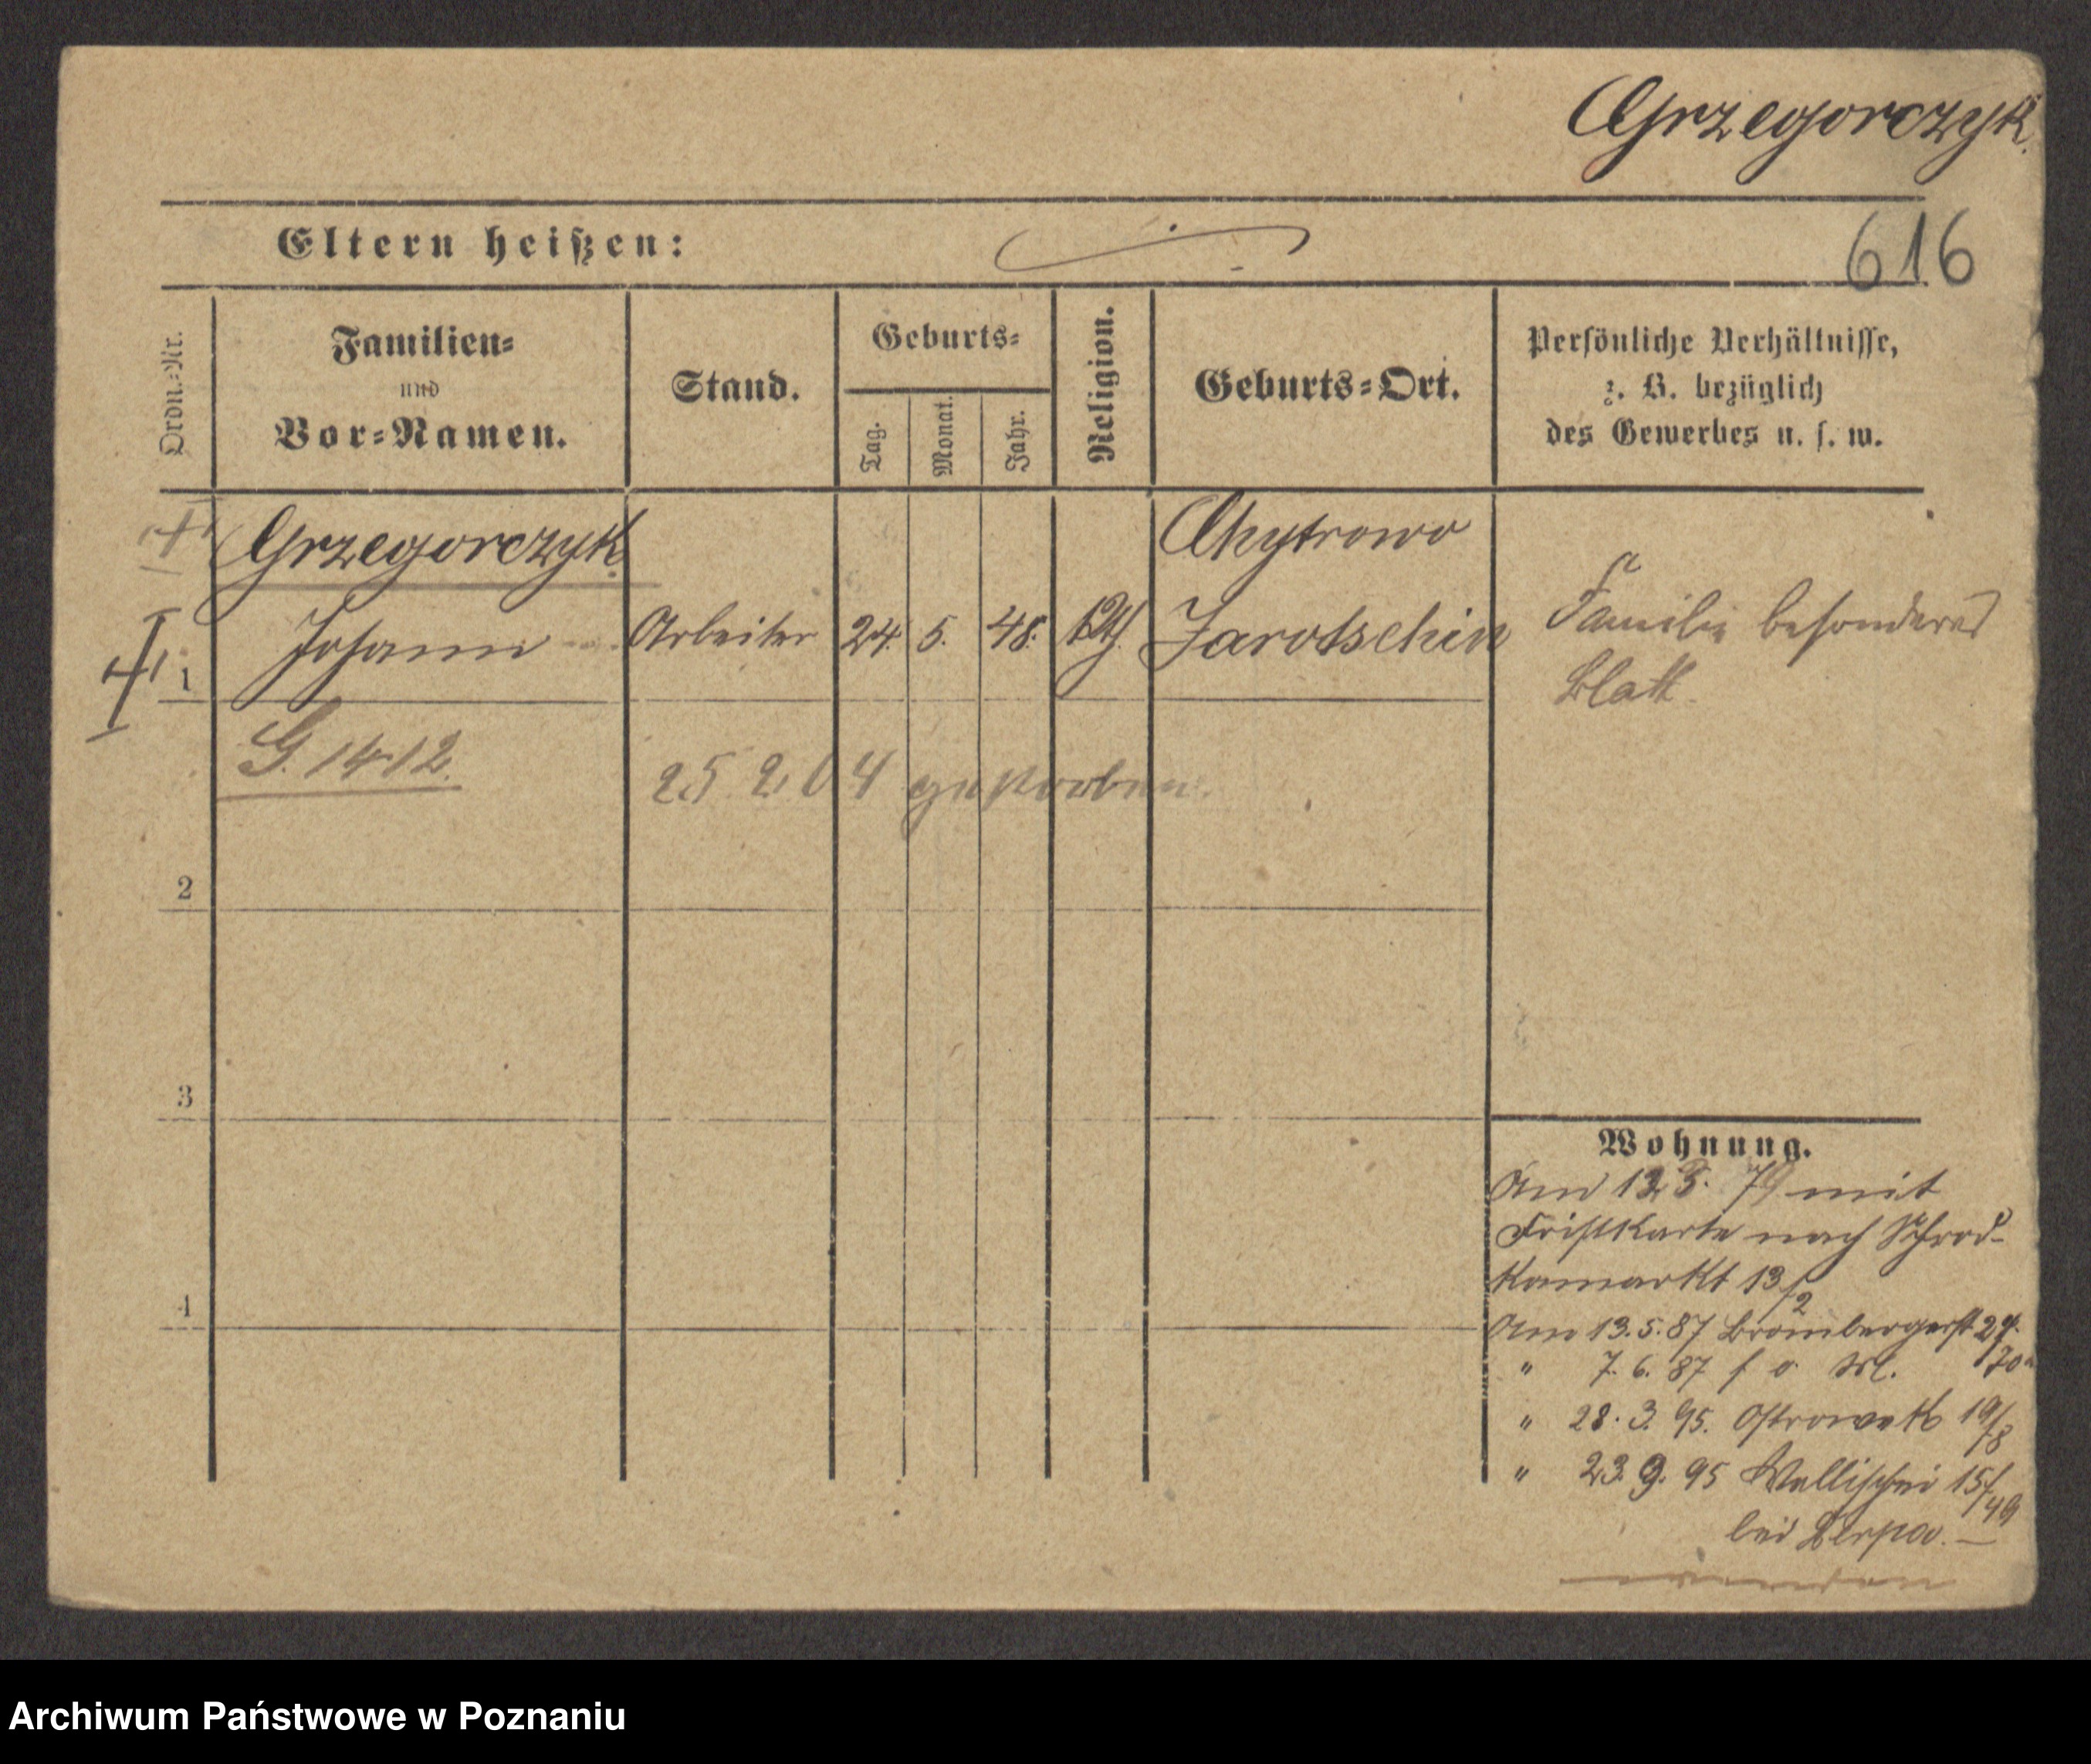 Grzegorczyk.
616
Eltern heißen:
Ordn.-Nr.
Familien-
und
Vor-Namen.
Stand.
Geburts-
Tag.
Monat.
Jahr.
Religion.
Geburts-Ort.
Persönliche Verhältnisse,
z. B. bezüglich
des Gewerbes u. s. w.
Grzegorczyk
Johann
Arbeiter
24. 5. 48.
kth.
Chytrowo
Jarotschin
Familie besonderes
Blatt.
1
G. 1412.
25 2 04 gestorben.
2
3
4
Wohnung.
Am 12 3. 79 mit
Fristkarte nach Schrod-
kamarkt 13/2
Am 13.5.87 Brombergerst
" 7.6.87
" 28.3.95. Ostrowek 19/8
" 23.9.95 Wallischei 15/49
bei
wenden
Archiwum Państwowe w Poznaniu